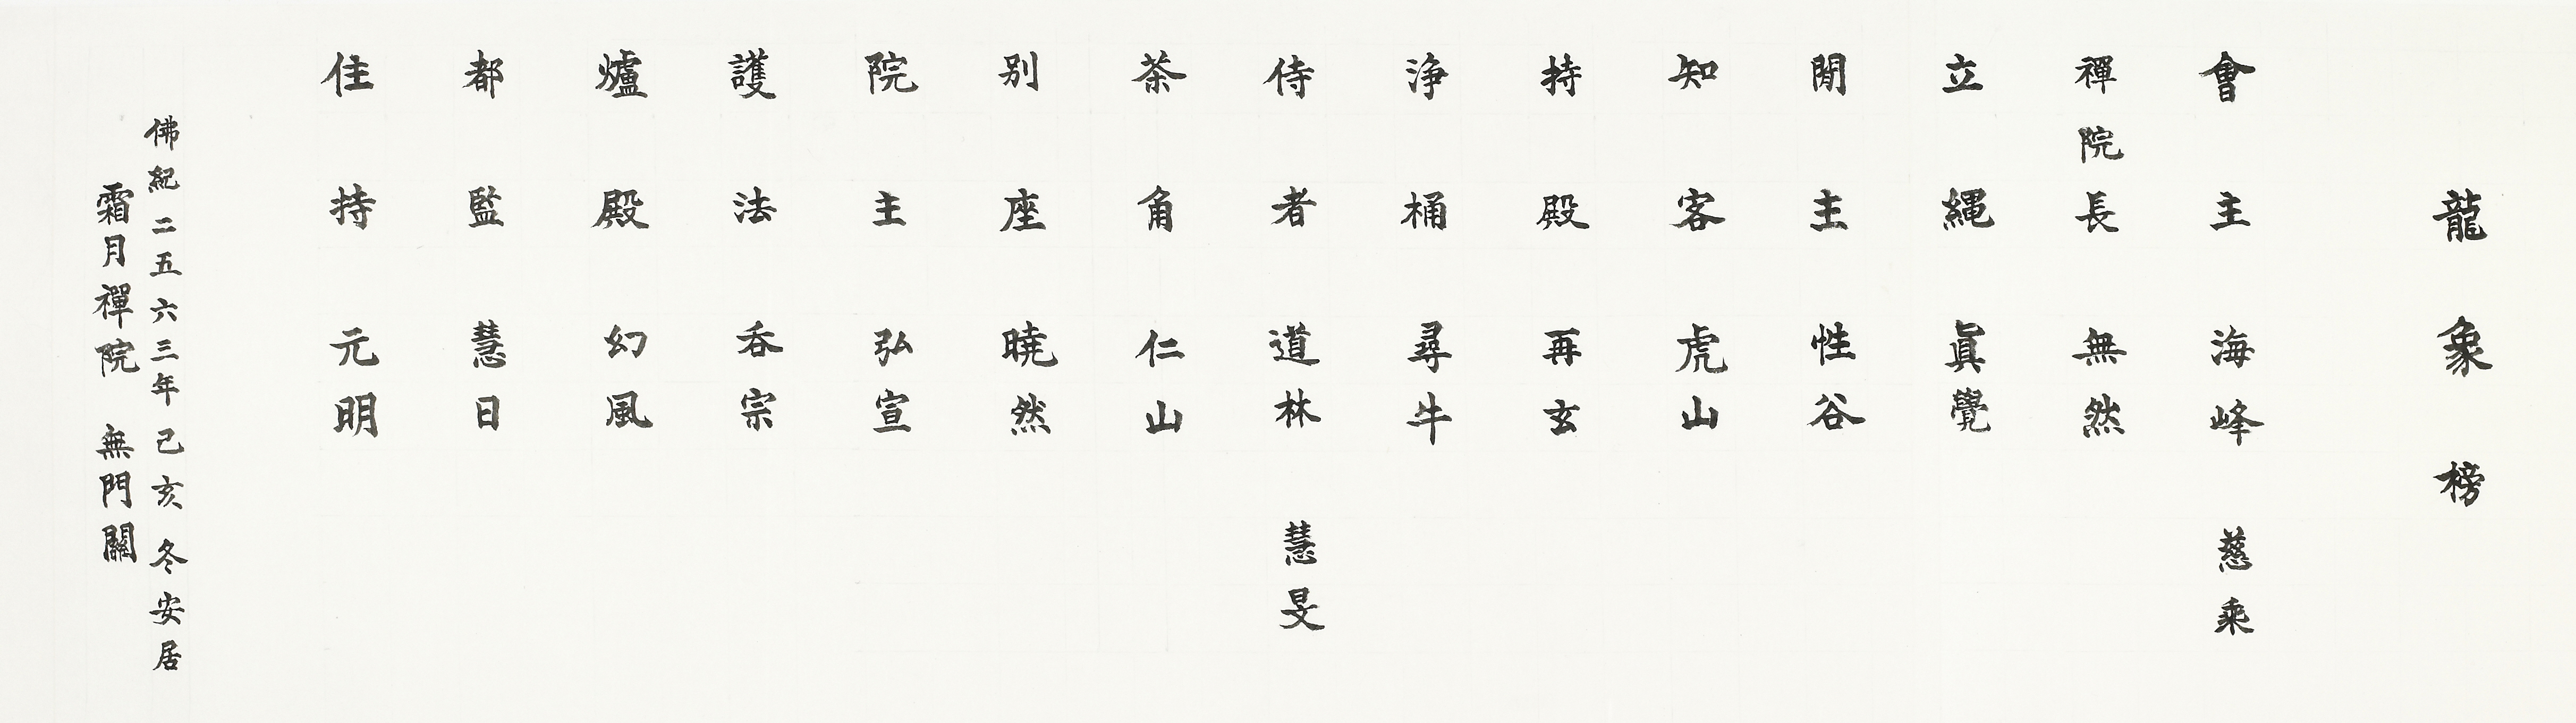 龍象榜
會主 海峰 慈乘
禪院長 無然
立繩 眞覺
閒主 性谷
知客 虎山
持殿 再玄
浄桶 尋牛
侍者 道林 慧旻
茶角 仁山
別座 曉然
院主 弘宣
護法 呑宗
爐殿 幻風
都監 慧日
住持 元明
佛紀二五六三年己亥冬安居
霜月禪院 無門關